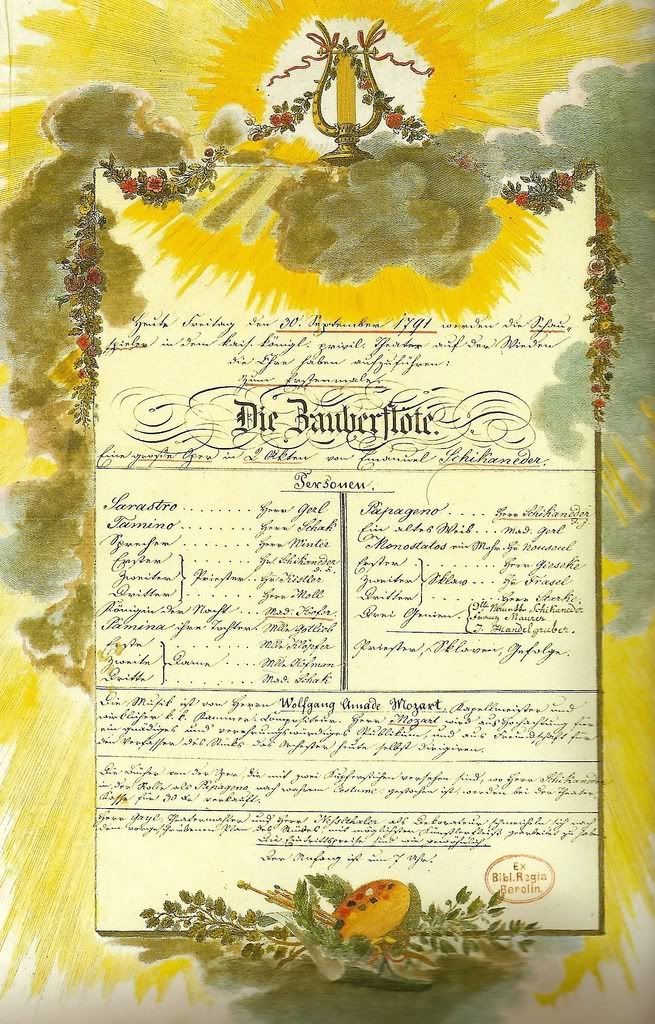 Heute Freitag den 30. September 1791 werden die Schau-
spieler in dem kais. königl. privil. Theater auf der Wieden
die Ehre haben aufzuführen:
Zum Erstenmale:
Die Zauberflöte.
Eine große Oper in 2 Akten von Emanuel Schikaneder.
Personen.
Sarastro Herr Gerl
Tamino Herr Schak
Sprecher Herr Winter
Erster Hr Schikaneder d. ä.
Zweiter } Priester Hr Kistler
Dritter Herr Moll
Königin der Nacht Mad. Hofer
Pamina ihre Tochter Mlle Gottlieb
Erste Mlle Klöpfer
Zweite } Dame Mlle Hofman
Dritte Mad. Schak
Papageno Herr Schikaneder d. j.
Ein altes Weib Mad. Gerl
Monostatos ein Mohr Hr Nouseul
Erster Herr Gieseke
Zweiter } Sklav Hr Frasel
Dritter Herr Starke
Drei Genien Schikaneder
Maurer
Handelgruber
Priester, Sklaven, Gefolge.
Die Musik ist von Herrn Wolfgang Amade Mozart, Kapellmeister und
wirklicher k. k. Kammer Compositeur. Herr Mozart wird aus Hochachtung für
ein gnädiges und verehrungswürdiges Publikum, und aus Freundschaft für
den Verfasser des Stücks das Orchester heute selbst dirigiren.
Die Bücher von der Oper, die mit zwei Kupferstichen versehen sind, wo Herr Schikaneder
in der Rolle als Papageno nach wahrem Costume gestochen ist, werden bei der Theater
Kasse für 30 kr verkauft.
Herr Gayl Theatermahler und Herr Neßthaler als Dekorateur schmeicheln sich nach
dem vorgeschriebenen Plan des Stückes, mit möglichstem Künstlerfleiß gearbeitet zu haben.
Die Eintrittspreise sind wie gewöhnlich.
Der Anfang ist um 7 Uhr.
Ex
Bibl. Regia
Berolin.